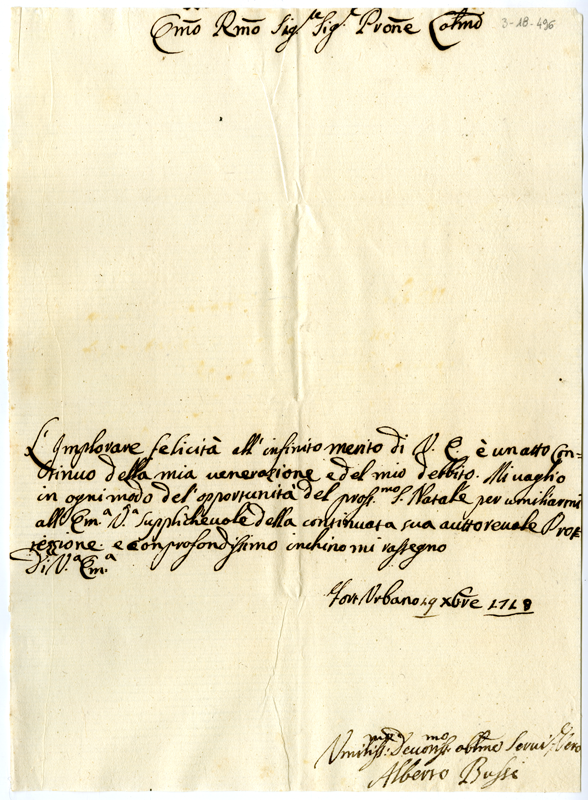 Em̃o Rmõ Sig.re Sig.r Prone Col̃mo
3-18-496
L'Implorare felicità all'infinito merito di V. E. è un atto Con-
tinuo della mia uenerazione e del mio debito. Mi uaglio
in ogni modo del'opportunità del pross.mo S. Natale per umiliarmi
all'Em.a V.a supplicheuole della continuata sua auttoreuole Prot-
tezzione. e con profondissimo inchino mi rassegno
Di V.a Em.a
Fort Urbano 19 Xbre 1718
Vmiliss.mo Deuotiss.mo oblmo Seruid.
Alberto Bussi